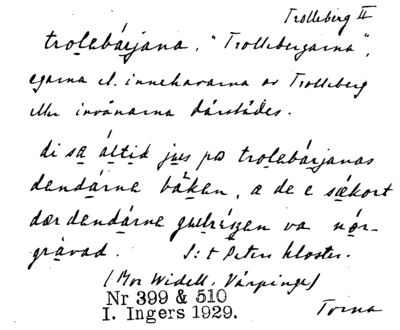 Trolleberg II
trolebárjana, "Trollebergarna",
egarna el. innehavarna av Trolleberg
eller invånarna därstädes.
di sa áltid jus po trolebárjanas
dendárne báken, a de e sækort
dær dendárne gulrézen va nór-
grávad. S:t Peters kloster.
(Mor Widell, Värpinge)
Nr 399 & 510
I. Ingers 1929.
Torna